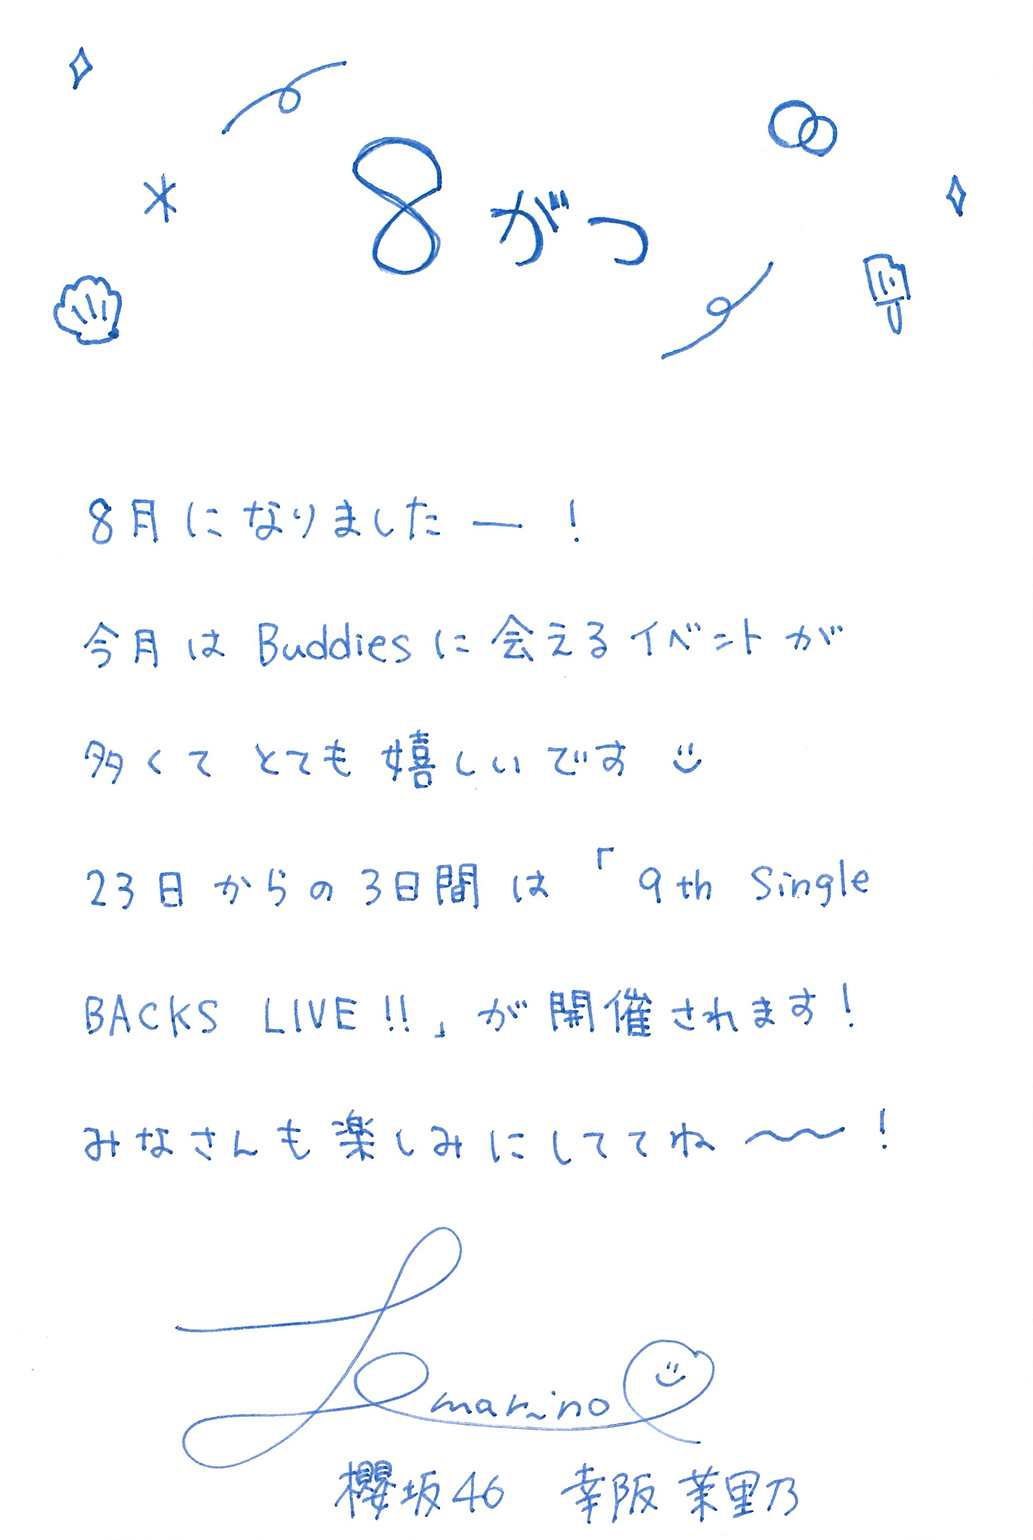 8がつ
8月になりましたー！
今月はBuddiesに会えるイベントが
多くてとても嬉しいです
23日からの3日間は「9th Single
BACKS LIVE!!」が開催されます！
みなさんも楽しみにしててね〜〜！
marino
櫻坂46 幸阪茉里乃